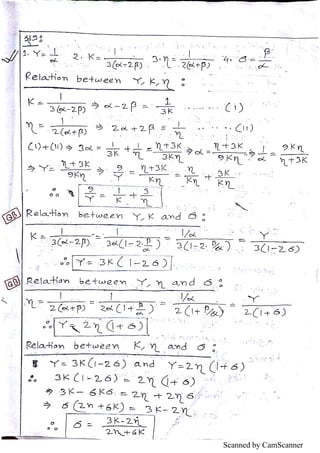 1. Y = 1/α 2. K = 1/3(α-2β) 3. η = 1/2(α+β) 4. σ = β/α
Relation between Y, K, η :
K = 1/3(α-2β) ⇒ α-2β = 1/3K ...... (I)
η = 1/2(α+β) ⇒ 2α+2β = 1/η ...... (II)
(I)+(II) ⇒ 3α = 1/3K + 1/η = η+3K/3Kη ⇒ α = η+3K/9Kη ⇒ 1/α = 9Kη/η+3K
⇒ Y = 9Kη/η+3K ⇒ 9/Y = η+3K/Kη = η/Kη + 3K/Kη
∴ 9/Y = 1/K + 3/η
Relation between Y, K and σ :
K = 1/3(α-2β) = 1/3α(1-2·β/α) = 1/α/3(1-2·β/α) = Y/3(1-2σ)
∴ Y = 3K(1-2σ)
Relation between Y, η and σ :
η = 1/2(α+β) = 1/2α(1+β/α) = 1/α/2(1+β/α) = Y/2(1+σ)
∴ Y = 2η(1+σ)
Relation between K, η and σ :
Y = 3K(1-2σ) and Y = 2η(1+σ)
∴ 3K(1-2σ) = 2η(1+σ)
⇒ 3K - 6Kσ = 2η + 2ησ
⇒ σ(2η+6K) = 3K-2η
∴ σ = 3K-2η/2η+6K
Scanned by CamScanner